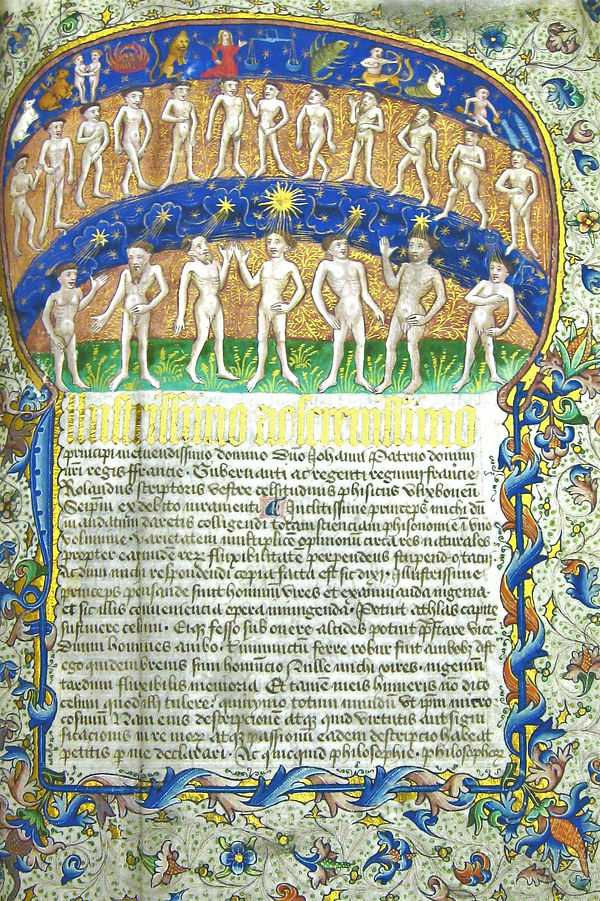 Illustrissimo ac serenissimo
principi metuendissimo domino Duo Johanni Patruo domini
nri regis ffrancie. Gubernanti ac regenti regnum francie
Rolandus scriptoris vestre celsitudinis phisicus Vlixbonen
Seipm ex debito iuramenti Inclitissime princeps michi dum
in mandatum daretis colligendi totam scienciam phisonomie i uno
volumine. varietatem multiplicem opinionum circa res naturales
propter earumdem rerum fluxibilitatem perpendens stupendo.
ac dum michi respondendi copia facta est sic dixi. Illustrissime
princeps pensande sunt hominum vires et examinanda ingenia
et sic illis conueniencia opera iniungenda. Potuit athlas capite
sustinere celum. Eique fesso sub onere. alcides potuit prestare vice
Dum homines ambo. inuictum ferre robur fuit ambobus Ast
ego quidem breuis sum homuncio Nulle michi vires. ingenium
tardum fluxibilis memoria. Et tamen meis humeris no dico
celum quod tulere. quinymo totum mundum vt ipm micro
cosmum Nam eius descripcionem atque quid virtutis aut signi
ficacionis in re inest. atque passionum eadem descripcio habeat
petitis p me declarari. Ac quicquid philosophie. philosophorum